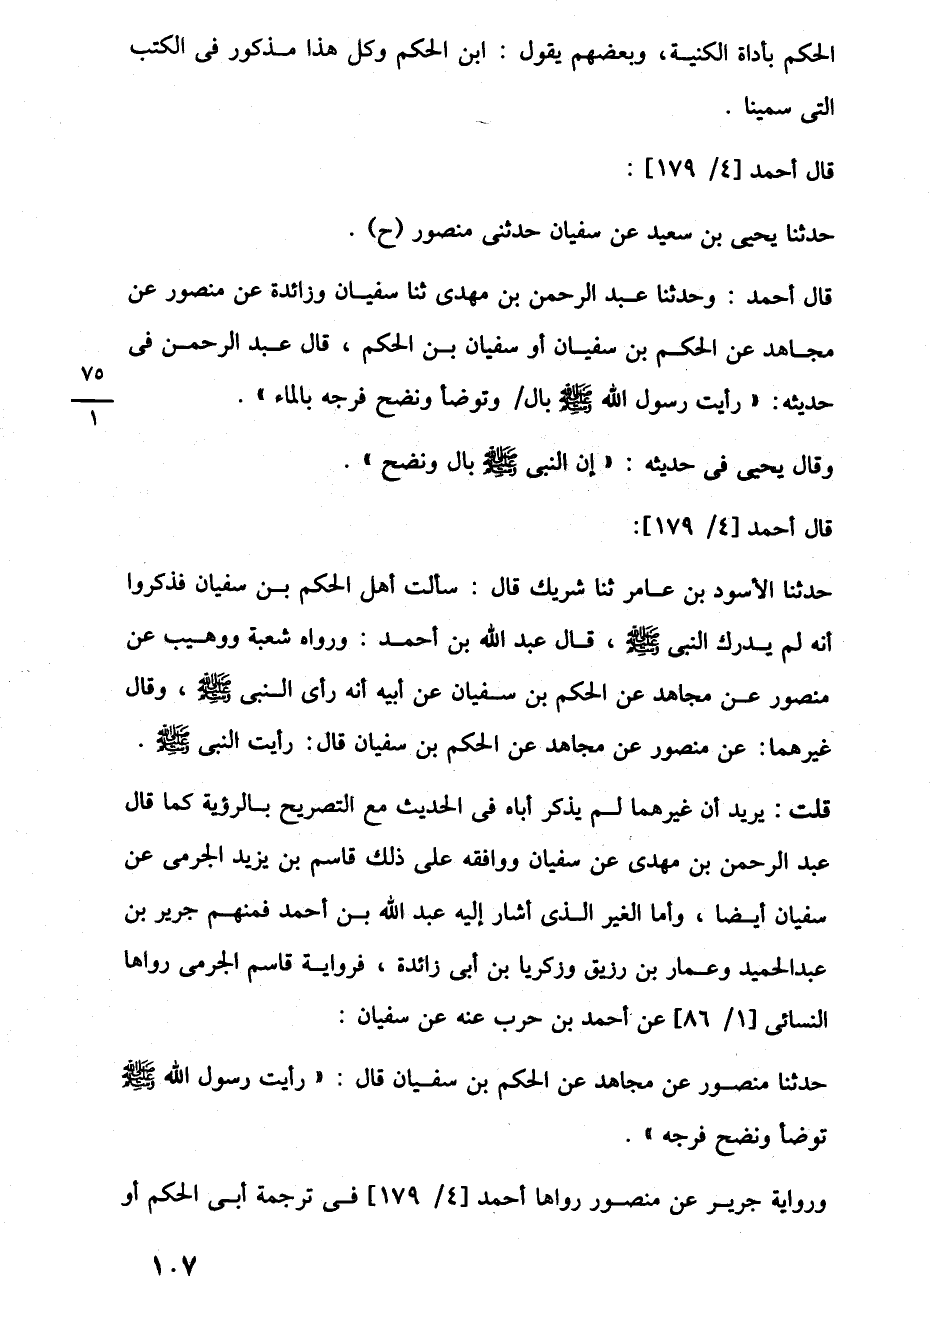 الحكم بأداة الكنية، وبعضهم يقول : ابن الحكم وكل هذا مذكور فى الكتب
التى سمينا .
قال أحمد [٤/ ١٧٩] :
حدثنا يحيى بن سعيد عن سفيان حدثنى منصور (ح) .
قال أحمد : وحدثنا عبد الرحمن بن مهدى ثنا سفيان وزائدة عن منصور عن
مجاهد عن الحكم بن سفيان أو سفيان بن الحكم ، قال عبد الرحمن فى
حديثه: « رأيت رسول الله ﷺ بال/ وتوضأ ونضح فرجه بالماء » .
٧٥
١
وقال يحيى فى حديثه : « إن النبى ﷺ بال ونضح » .
قال أحمد [٤/ ١٧٩]:
حدثنا الأسود بن عامر ثنا شريك قال : سألت أهل الحكم بن سفيان فذكروا
أنه لم يدرك النبى ﷺ ، قال عبد الله بن أحمد : ورواه شعبة ووهيب عن
منصور عن مجاهد عن الحكم بن سفيان عن أبيه أنه رأى النبى ﷺ ، وقال
غيرهما: عن منصور عن مجاهد عن الحكم بن سفيان قال: رأيت النبى ﷺ .
قلت : يريد أن غيرهما لم يذكر أباه فى الحديث مع التصريح بالرؤية كما قال
عبد الرحمن بن مهدى عن سفيان ووافقه على ذلك قاسم بن يزيد الجرمى عن
سفيان أيضا ، وأما الغير الذى أشار إليه عبد الله بن أحمد فمنهم جرير بن
عبدالحميد وعمار بن رزيق وزكريا بن أبى زائدة ، فرواية قاسم الجرمى رواها
النسائى [١/ ٨٦] عن أحمد بن حرب عنه عن سفيان :
حدثنا منصور عن مجاهد عن الحكم بن سفيان قال : « رأيت رسول الله ﷺ
توضأ ونضح فرجه » .
ورواية جرير عن منصور رواها أحمد [٤/ ١٧٩] فى ترجمة أبى الحكم أو
١٠٧